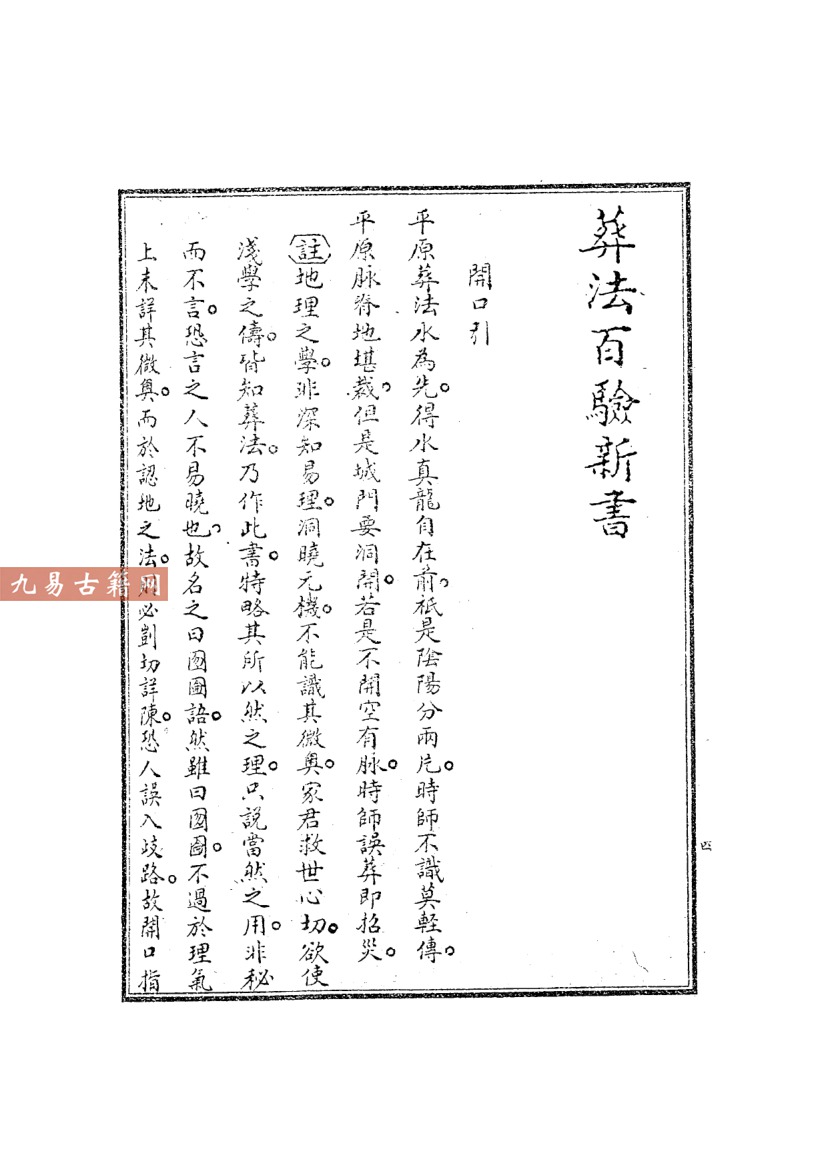 葬法百驗新書
開口引
平原葬法水為先。得水真龍自在前。祇是陰陽分兩片。時師不識莫軽傳。
平原脉脊地堪裁。但是城門要洞開。若是不開空有脉。時師誤葬即招災。
註地理之學。非深知易理。洞曉元機。不能識其微奥。家君救世心切。欲使
淺學之儔。皆知葬法。乃作此書。特略其所以然之理。只說當然之用。非秘
而不言。恐言之人不易曉也。故名之曰囫圇語。然雖曰囫圇。不過於理氣
上未詳其微奥。而於認地之法。必剴切詳陳。恐人誤入歧路。故開口指
九易古籍网
四